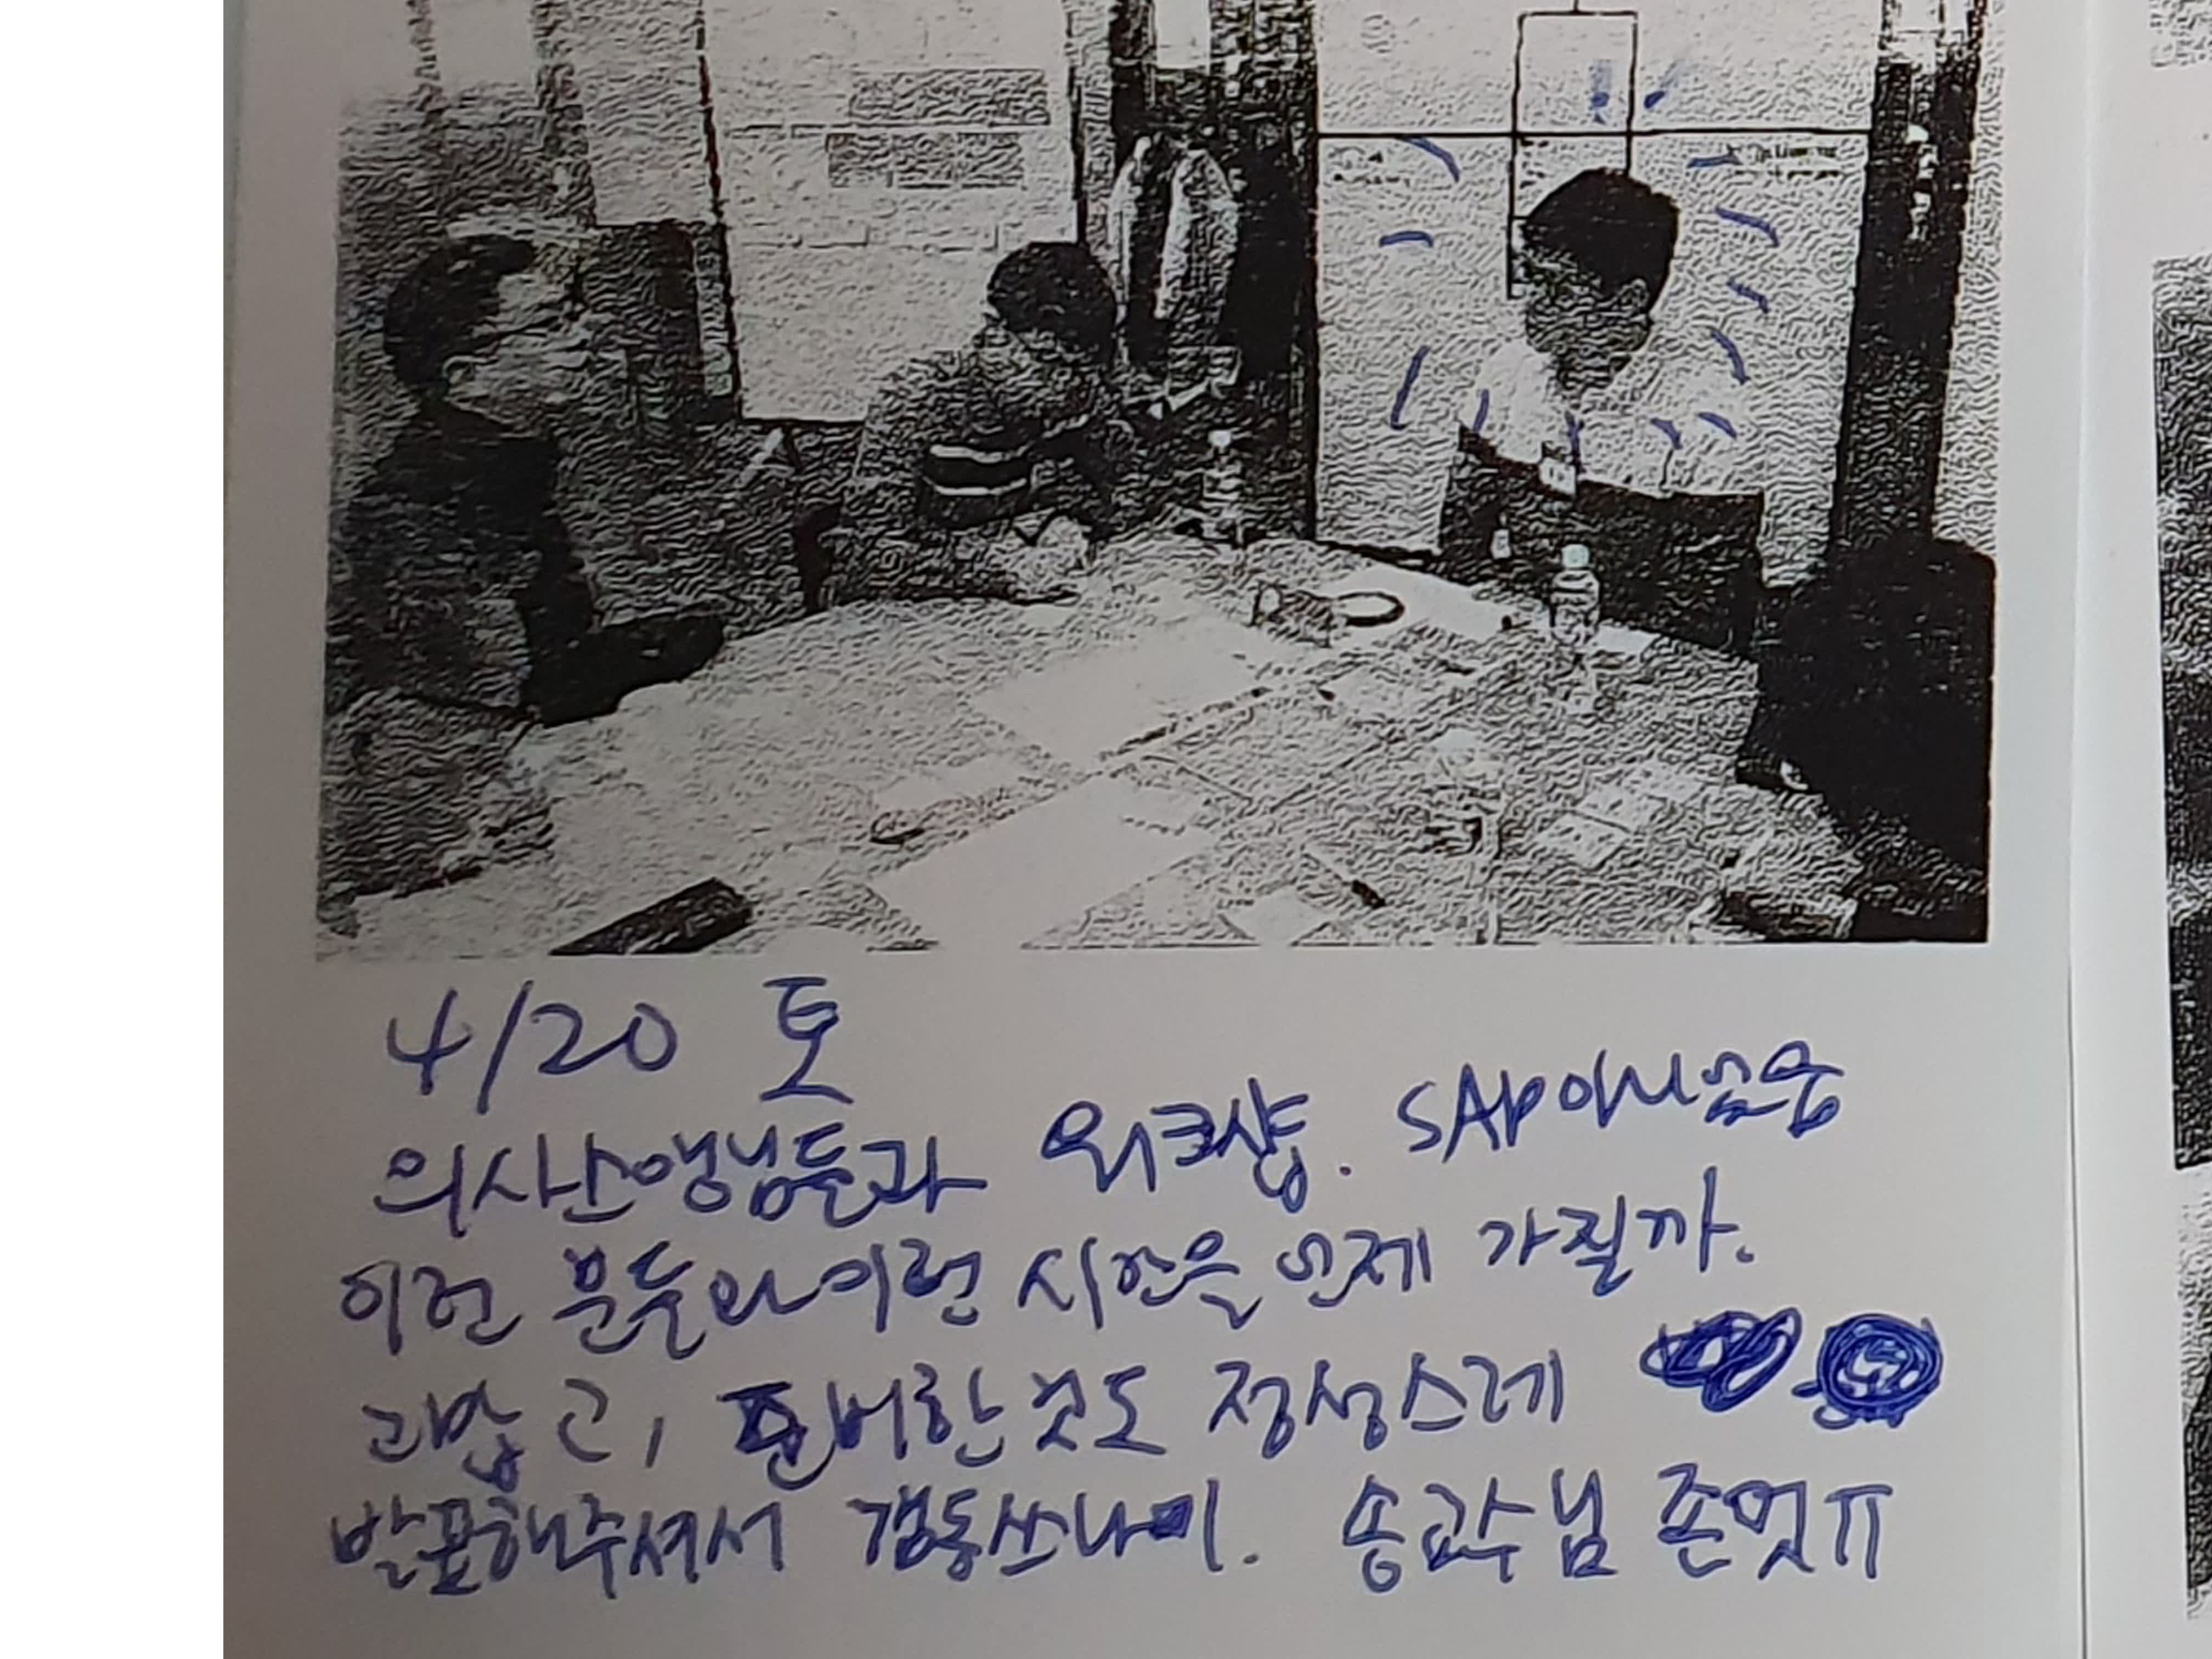 4/20 토
의사선생님들과 워크샵. SAP아니었음
이런 분들과 이런 시간을 언제 가질까.
고맙고, 준비한 것도 정성스레
발표해주셔서 갬동쓰나미. 송교수님 존멋ㅠ